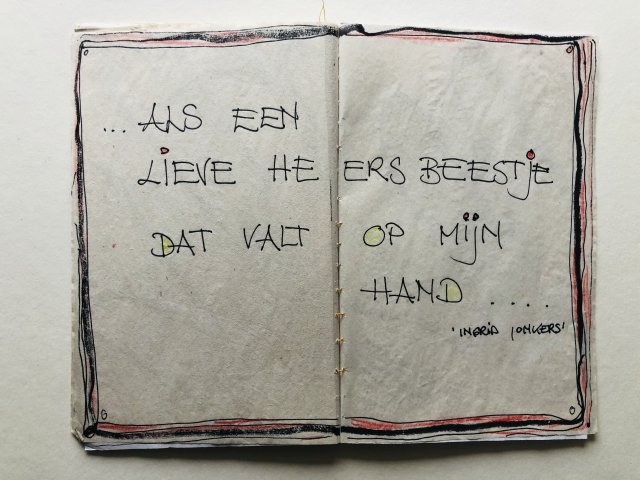 ... ALS EEN
LIEVE HEERSBEESTjE
DAT VALT OP MijN
HAND ....
'INGRID JONKERS'